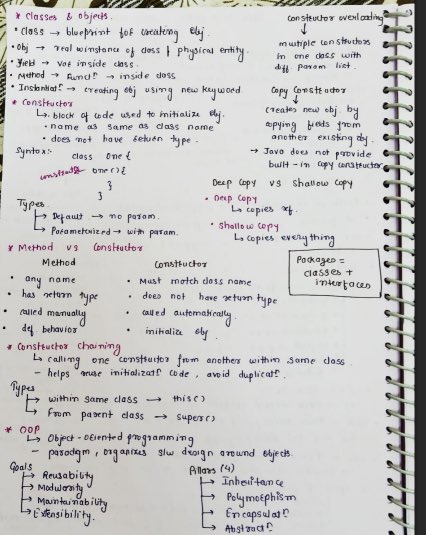 * Classes & objects.
• Class → blueprint for creating obj.
• Obj → real winstance of class & physical entity.
• Field → var inside class.
• Method → Functⁿ → inside class
• Instantiatⁿ → creating obj using new keyword.
* Constructor
↳ block of code used to initialize obj.
• name as same as class name
• does not have return type.
Syntax:-
class one {
constructor one () {
}
}
Types
→ Default → no param.
→ Parametrized → with param.
Constructor overloading
↓
multiple constructors
in one class with
diff param list.
Copy Constructor
↓
creates new obj by
copying fields from
another existing obj.
→ Java does not provide
built-in copy constructor
Deep Copy vs Shallow Copy
• Deep Copy
↳ copies ref.
• Shallow Copy
↳ copies everything
* Method vs Constructor
Method Constructor
• any name • Must match class name
• has return type • does not have return type
• called manually • called automatically.
• def behavior • initialize obj
Packages =
classes +
interfaces
* Constructor Chaining
↳ calling one constructor from another within same class
- helps reuse initializatⁿ code, avoid duplicatⁿ.
Types
→ within same class → this()
→ From parent class → super()
* OOP
↳ Object-oriented programming
- paradigm, organizes s/w design around objects.
Goals
→ Reusability
→ Modularity
→ Maintainability
→ Extensibility.
Pillars (4)
→ Inheritance
→ Polymorphism
→ Encapsulatⁿ
→ Abstractⁿ